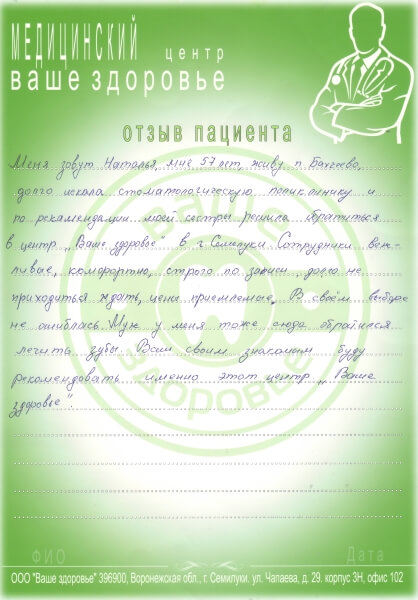 МЕДИЦИНСКИЙ центр
ваше здоровье
отзыв пациента
Меня зовут Наталья, мне 57 лет живу п. Бахчеево,
долго искала стоматологическую поликлинику и
по рекомендации моей сестры решила обратиться
в центр „Ваше здоровье" в г. Семилуки. Сотрудники веж-
ливые, комфортно, строго по записи, долго не
приходиться ждать, цены приемлемые. В своём выборе
не ошиблась. Муж у меня тоже сюда обратился
лечить зубы. Всем своим знакомым буду
рекомендовать именно этот центр „Ваше
здоровье".
ЗДОРОВЬЕ
ФИО Дата
ООО "Ваше здоровье" 396900, Воронежская обл., г. Семилуки. ул. Чапаева, д. 29. корпус 3Н, офис 102